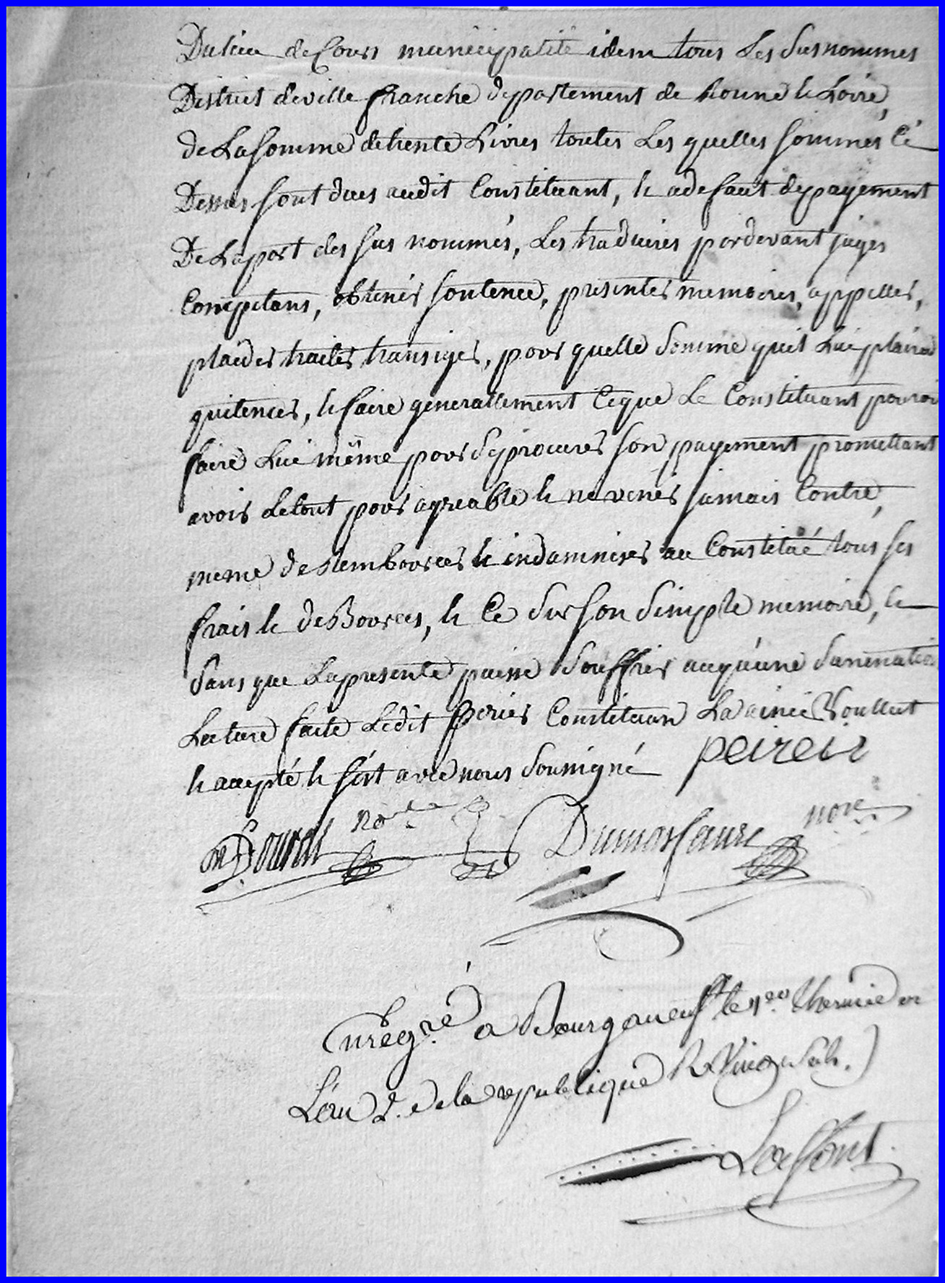 Du lieu de Cours municipalité idem tous Les Susnommes
District de ville franche departement de Roune le Loire,
de La somme de trente Livres toutes Les quelles sommes Cé
Dessus sont dues audit Constituant, le a defaut de payement
De La part des sus nommés, Les traduires pardevant juges
Competans, obtenir sentence, presintes memoires, appelles,
plaides traites transiges, pour quelle Somme quil Lui plaira
quitences, le faire generallement Ceque Le Constituant pouroi
faire Lui même pour Se procurer son payement promettant
avoir Le tout pour agreable le ne venir jamais Contre,
meme de Remboursees le indamnises au Constitué tous ses
frais le de Boursees, le Ce Sur Son Simple memoire, le
Sans que La presente puisse Souffrir auquune Suranatio
Lecture faite Ledit perier Constituan La ainsi Voullut
le accepté le s'est avec nous Soussigné peireir
Dumasfaure nore
Enregré a Bourganeuf le 11eo thermidor
L'an 2. de la republique R Vingt sols.)
Laffont